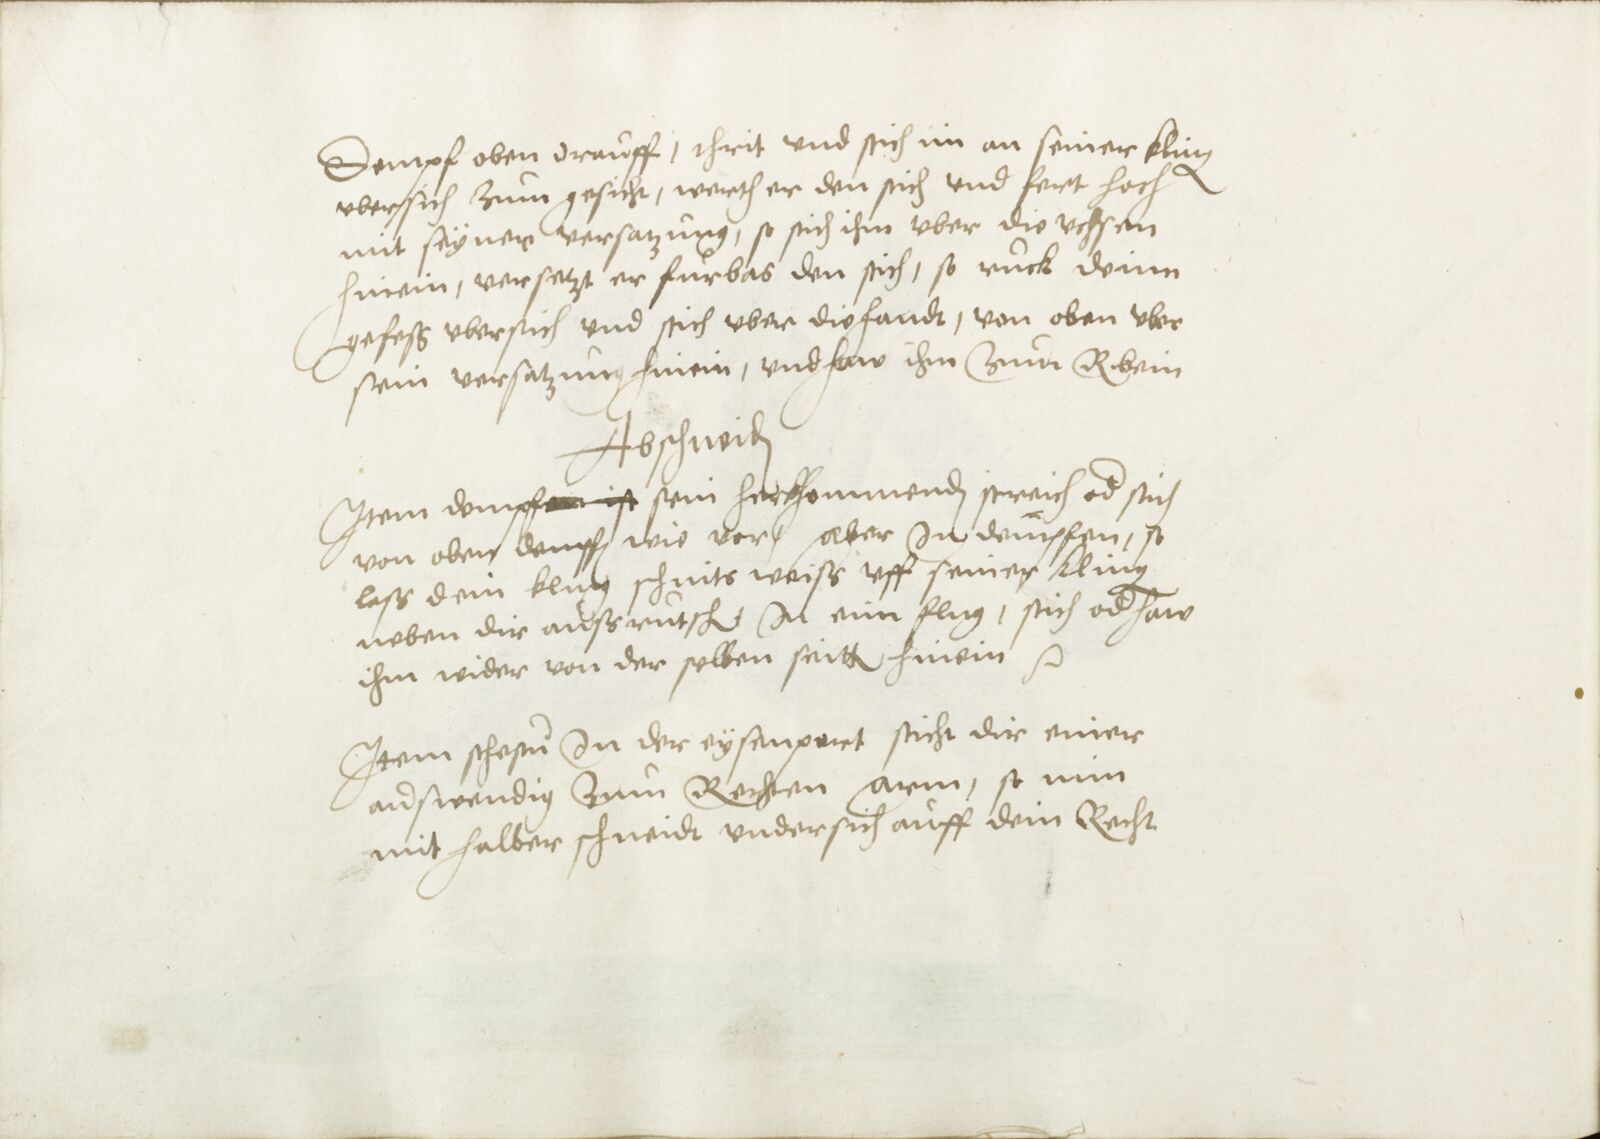 Dempf oben drauff, thrit und stich im an seiner kling
ubersich zum gesicht, werth er den stich und fert hoch
mit seyner versatzung, so stich ihm uber die uchsen
hinein, versetzt er furbas den stich, so ruck deinn
gefess ubersich und stich uber die handt, von oben uber
sein versatzung hinein, und haw ihm zum
Abschneiden
Item dempf sein herkhommenden streich od stich
von oben dempff wie vor, aber In dempffen, so
lass dein kling schnits weiss uff seiner kling
neben dir aussrutsch In eim flug, stich od haw
ihm wider von der selben seitt hinein
Item In der eysenport sticht dir einer
auswendig zum Rechten arm, so nim
mit halber schneidt undersich auff dein Recht